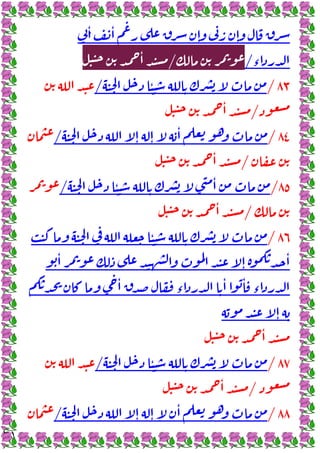 سرق قال وإن زنى وإن سرق على رغم أنف أبي
الدرداء /عويمر بن مالك/مسند أحمد بن حنبل
٨٣ /من مات لا يشرك بالله شيئا دخل الجنة/عبد الله بن
مسعود/مسند أحمد بن حنبل
٨٤ /من مات وهو يعلم أنه لا إله إلا الله دخل الجنة/عثمان
بن عفان /مسند أحمد بن حنبل
٨٥/من مات من أمتي لا يشرك بالله شيئا دخل الجنة/عويمر
بن مالك /مسند أحمد بن حنبل
٨٦ /من مات لا يشرك بالله شيئا جعله الله في الجنة وما كنت
أحدثكموه إلا عند الموت والشهيد على ذلك عويمر أبو
الدرداء فأتوا أبا الدرداء فقال صدق أخي وما كان يحدثكم
به إلا عند موته
مسند أحمد بن حنبل
٨٧ /من مات لا يشرك بالله شيئا دخل الجنة/عبد الله بن
مسعود /مسند أحمد بن حنبل
٨٨ /من مات وهو يعلم أن لا إله إلا الله دخل الجنة/عثمان